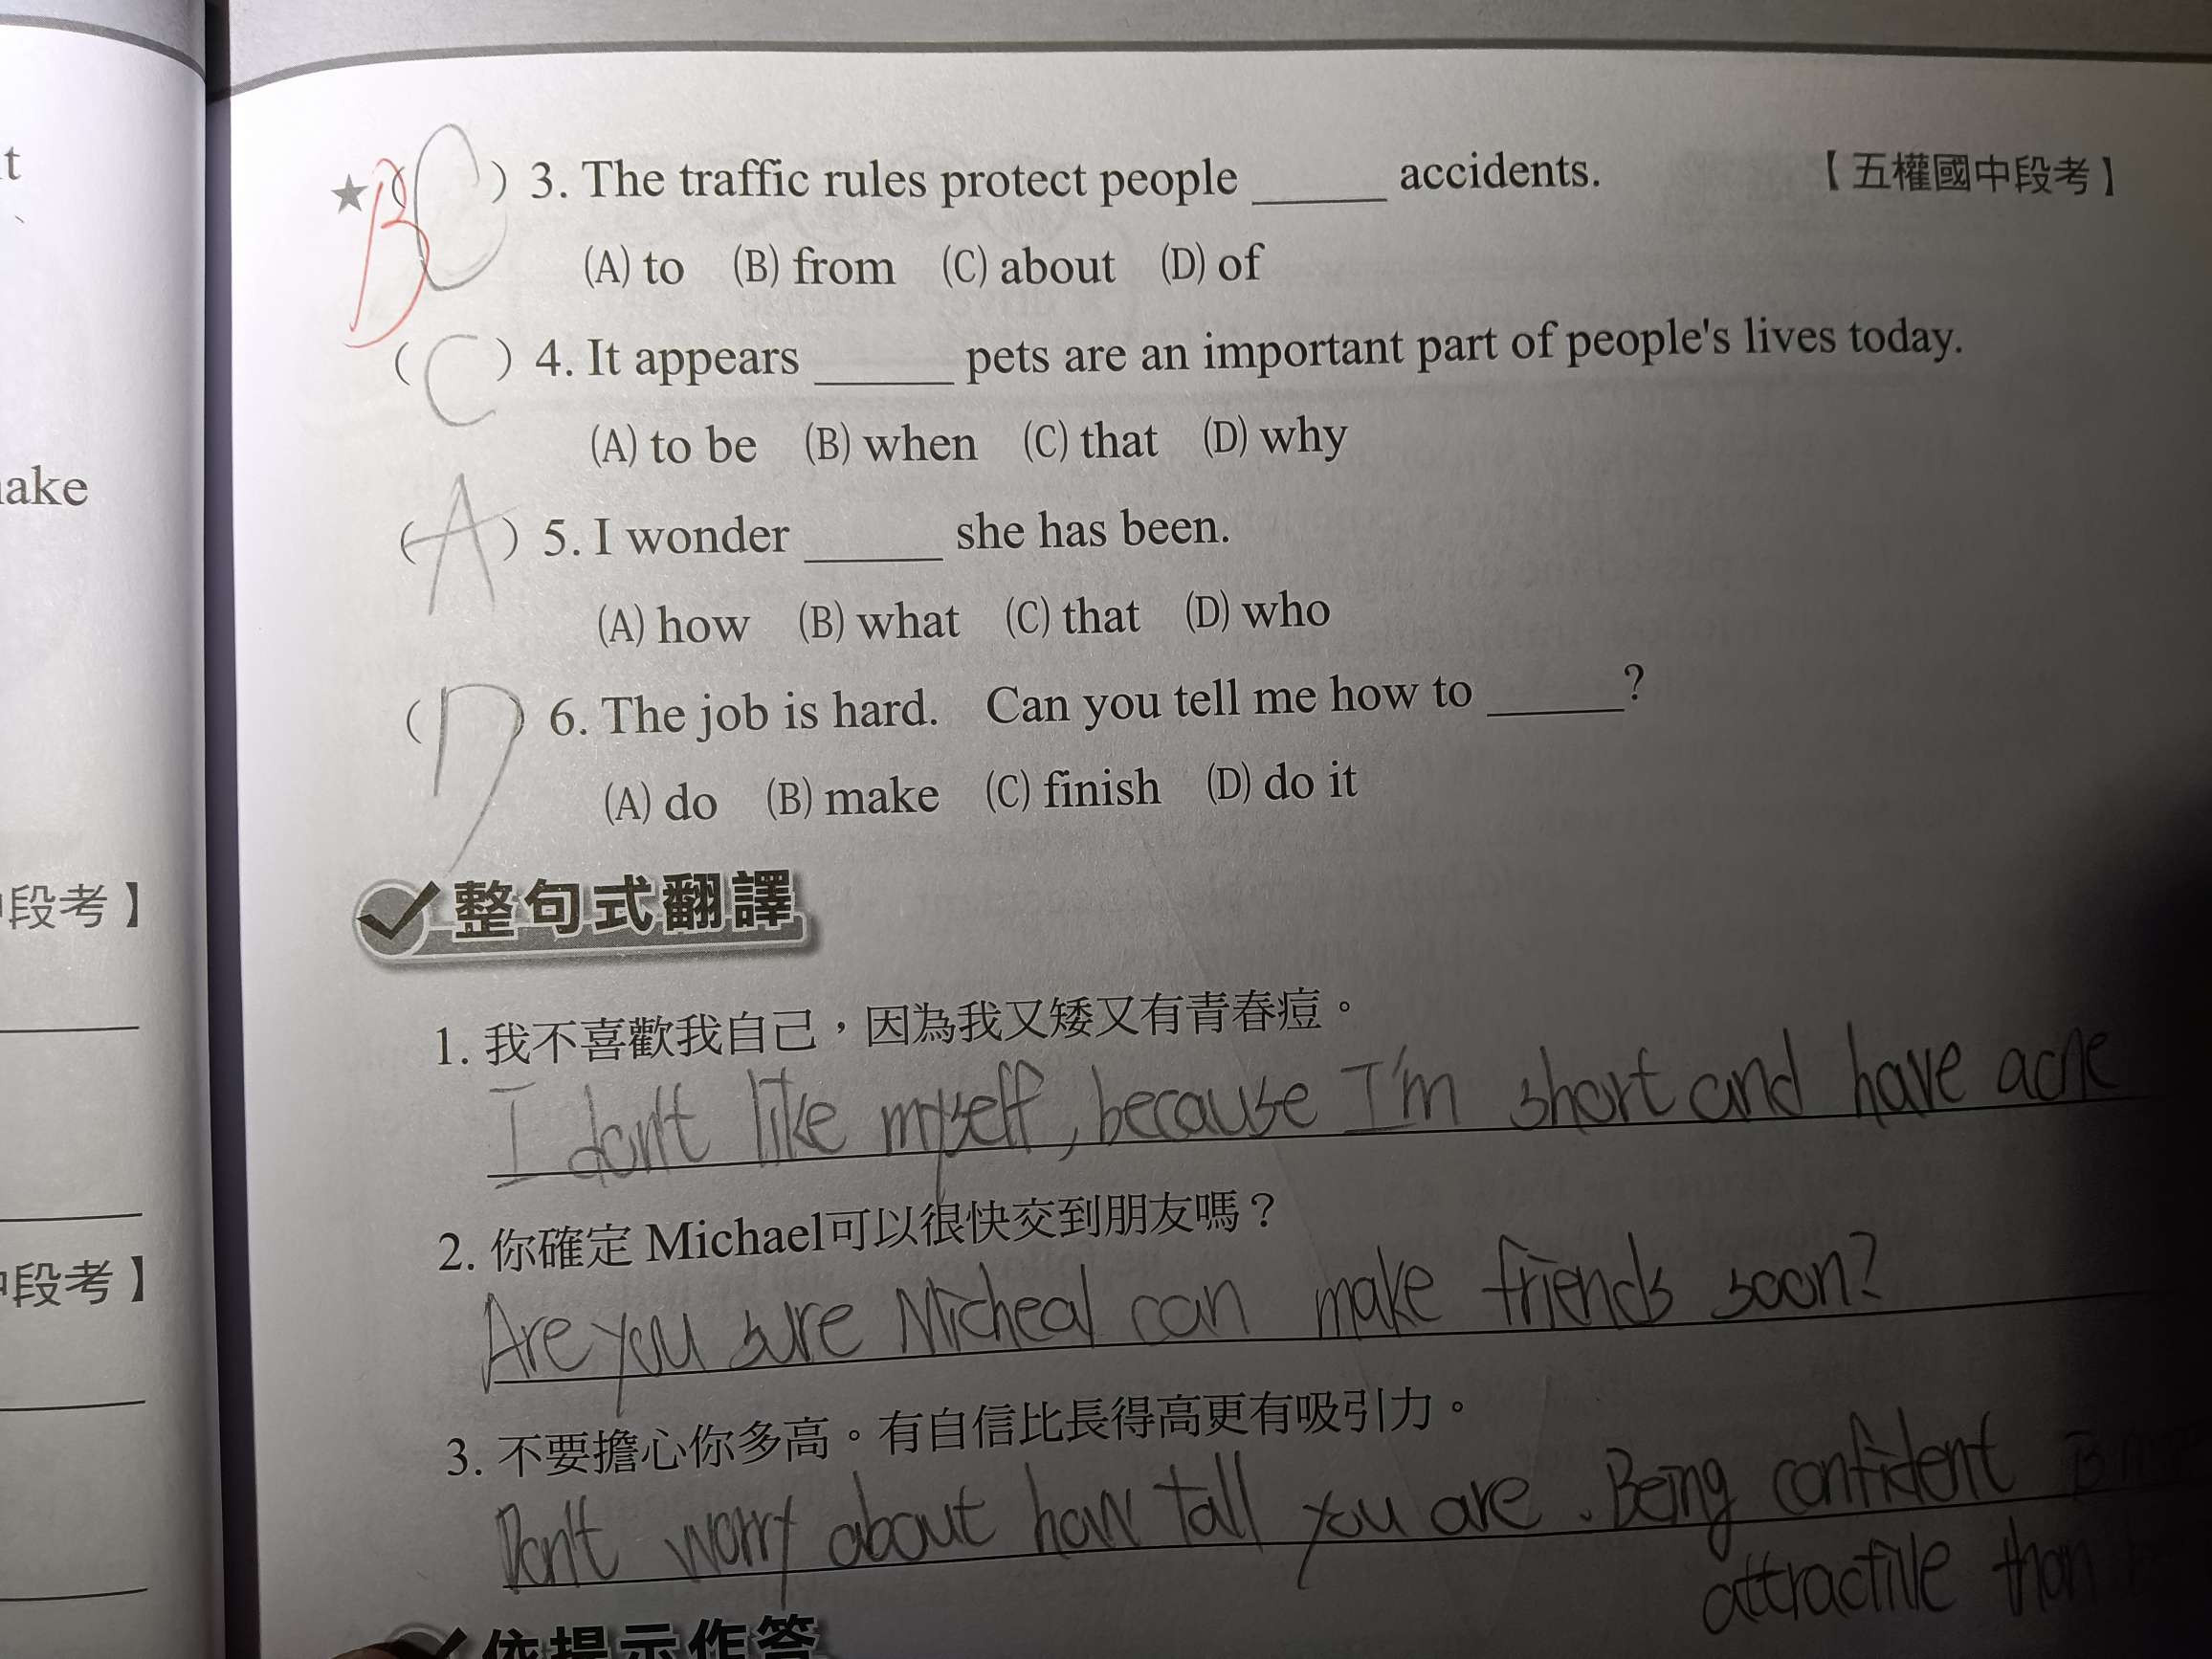 t
ake
中段考】
中段考】
★( B C ) 3. The traffic rules protect people ______ accidents. 【五權國中段考】
(A) to (B) from (C) about (D) of
( C ) 4. It appears ______ pets are an important part of people's lives today.
(A) to be (B) when (C) that (D) why
( A ) 5. I wonder ______ she has been.
(A) how (B) what (C) that (D) who
( D ) 6. The job is hard. Can you tell me how to ______?
(A) do (B) make (C) finish (D) do it
整句式翻譯
1. 我不喜歡我自己，因為我又矮又有青春痘。
I don't like myself, because I'm short and have acne
2. 你確定 Michael可以很快交到朋友嗎？
Are you sure Micheal can make friends soon?
3. 不要擔心你多高。有自信比長得高更有吸引力。
Don't worry about how tall you are. Being confident
attractive than
依提示作答